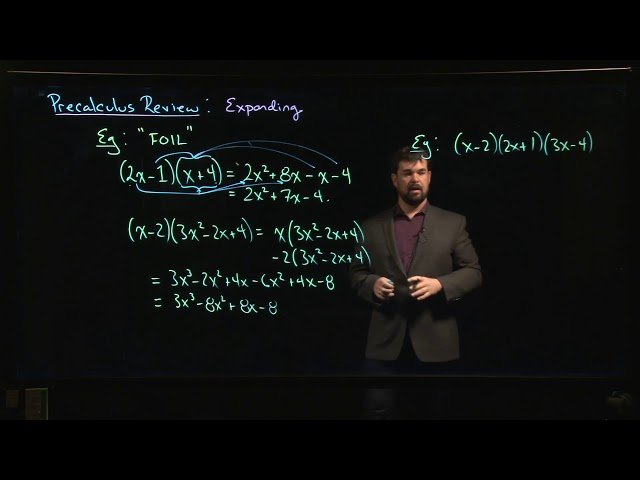 Precalculus Review: Expanding
Eg: "FOIL"
(2x-1)(x+4) = 2x²+8x-x-4
= 2x²+7x-4.
(x-2)(3x²-2x+4) = x(3x²-2x+4)
-2(3x²-2x+4)
= 3x³-2x²+4x-6x²+4x-8
= 3x³-8x²+8x-8
Eg: (x-2)(2x+1)(3x-4)